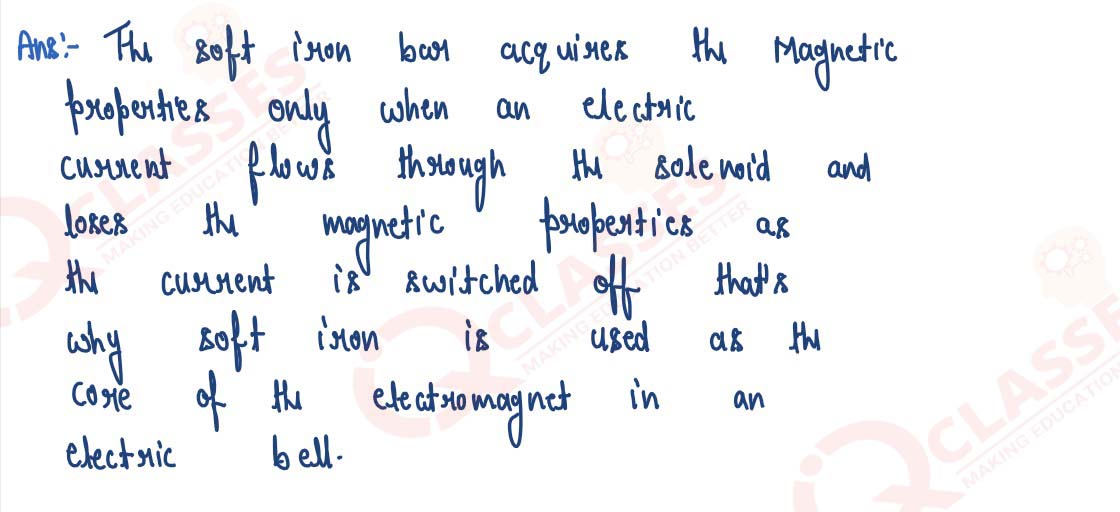 Ans:- The soft iron bar acquires the Magnetic
properties only when an electric
current flows through the solenoid and
loses the magnetic properties as
the current is switched off that's
why soft iron is used as the
core of the electromagnet in an
electric bell.
CLASSES
MAKING EDUCATION BETTER
CLASSES
MAKING EDUCATION BETTER
CLASSES
MAKING EDUCATION